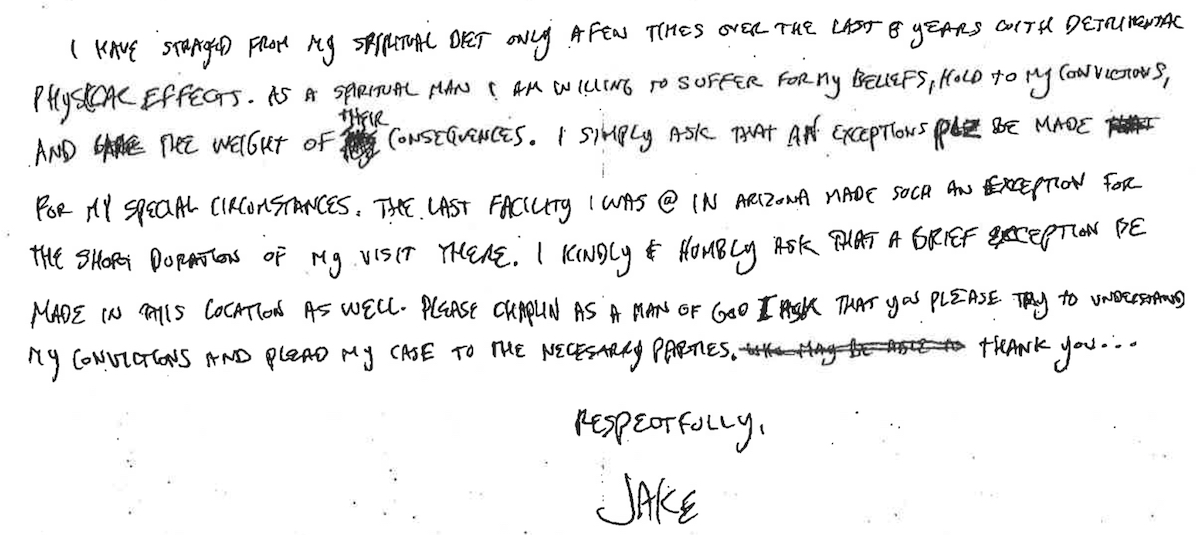 I HAVE STRAYED FROM MY SPIRITUAL DIET ONLY A FEW TIMES OVER THE LAST 8 YEARS WITH DETRIMENTAL
PHYSICAL EFFECTS. AS A SPIRITUAL MAN I AM WILLING TO SUFFER FOR MY BELIEFS, HOLD TO MY CONVICTIONS,
AND THE WEIGHT OF THEIR CONSEQUENCES. I SIMPLY ASK THAT AN EXCEPTIONS BE MADE
FOR MY SPECIAL CIRCUMSTANCES. THE LAST FACILITY I WAS @ IN ARIZONA MADE SUCH AN EXCEPTION FOR
THE SHORT DURATION OF MY VISIT THERE. I KINDLY & HUMBLY ASK THAT A BRIEF EXCEPTION BE
MADE IN THIS LOCATION AS WELL. PLEASE CHAPLIN AS A MAN OF GOD I ASK THAT YOU PLEASE TRY TO UNDERSTAND
MY CONVICTIONS AND PLEAD MY CASE TO THE NECESARRY PARTIES. WHO MAY BE ABLE TO THANK YOU...
RESPECTFULLY,
JAKE